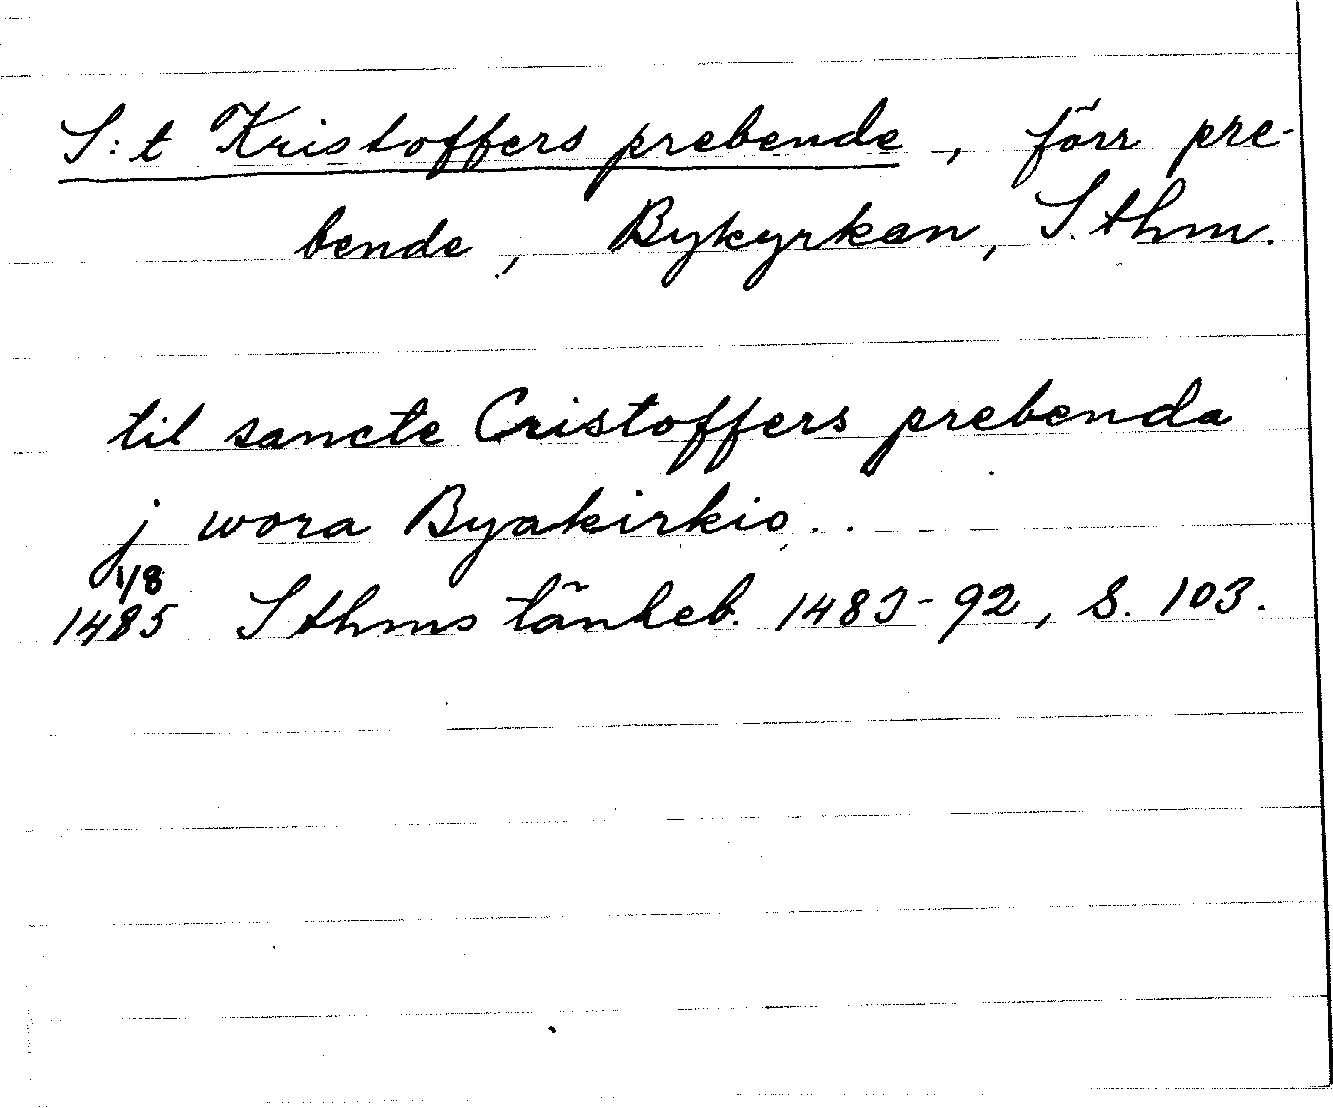 S:t Kristoffers prebende, förr pre-
bende, Bykyrkan, S.thm.
til sancte Cristoffers prebenda
j wora Byakirkio..
1/8
1485 Sthms tänkeb. 1483-92, s. 103.